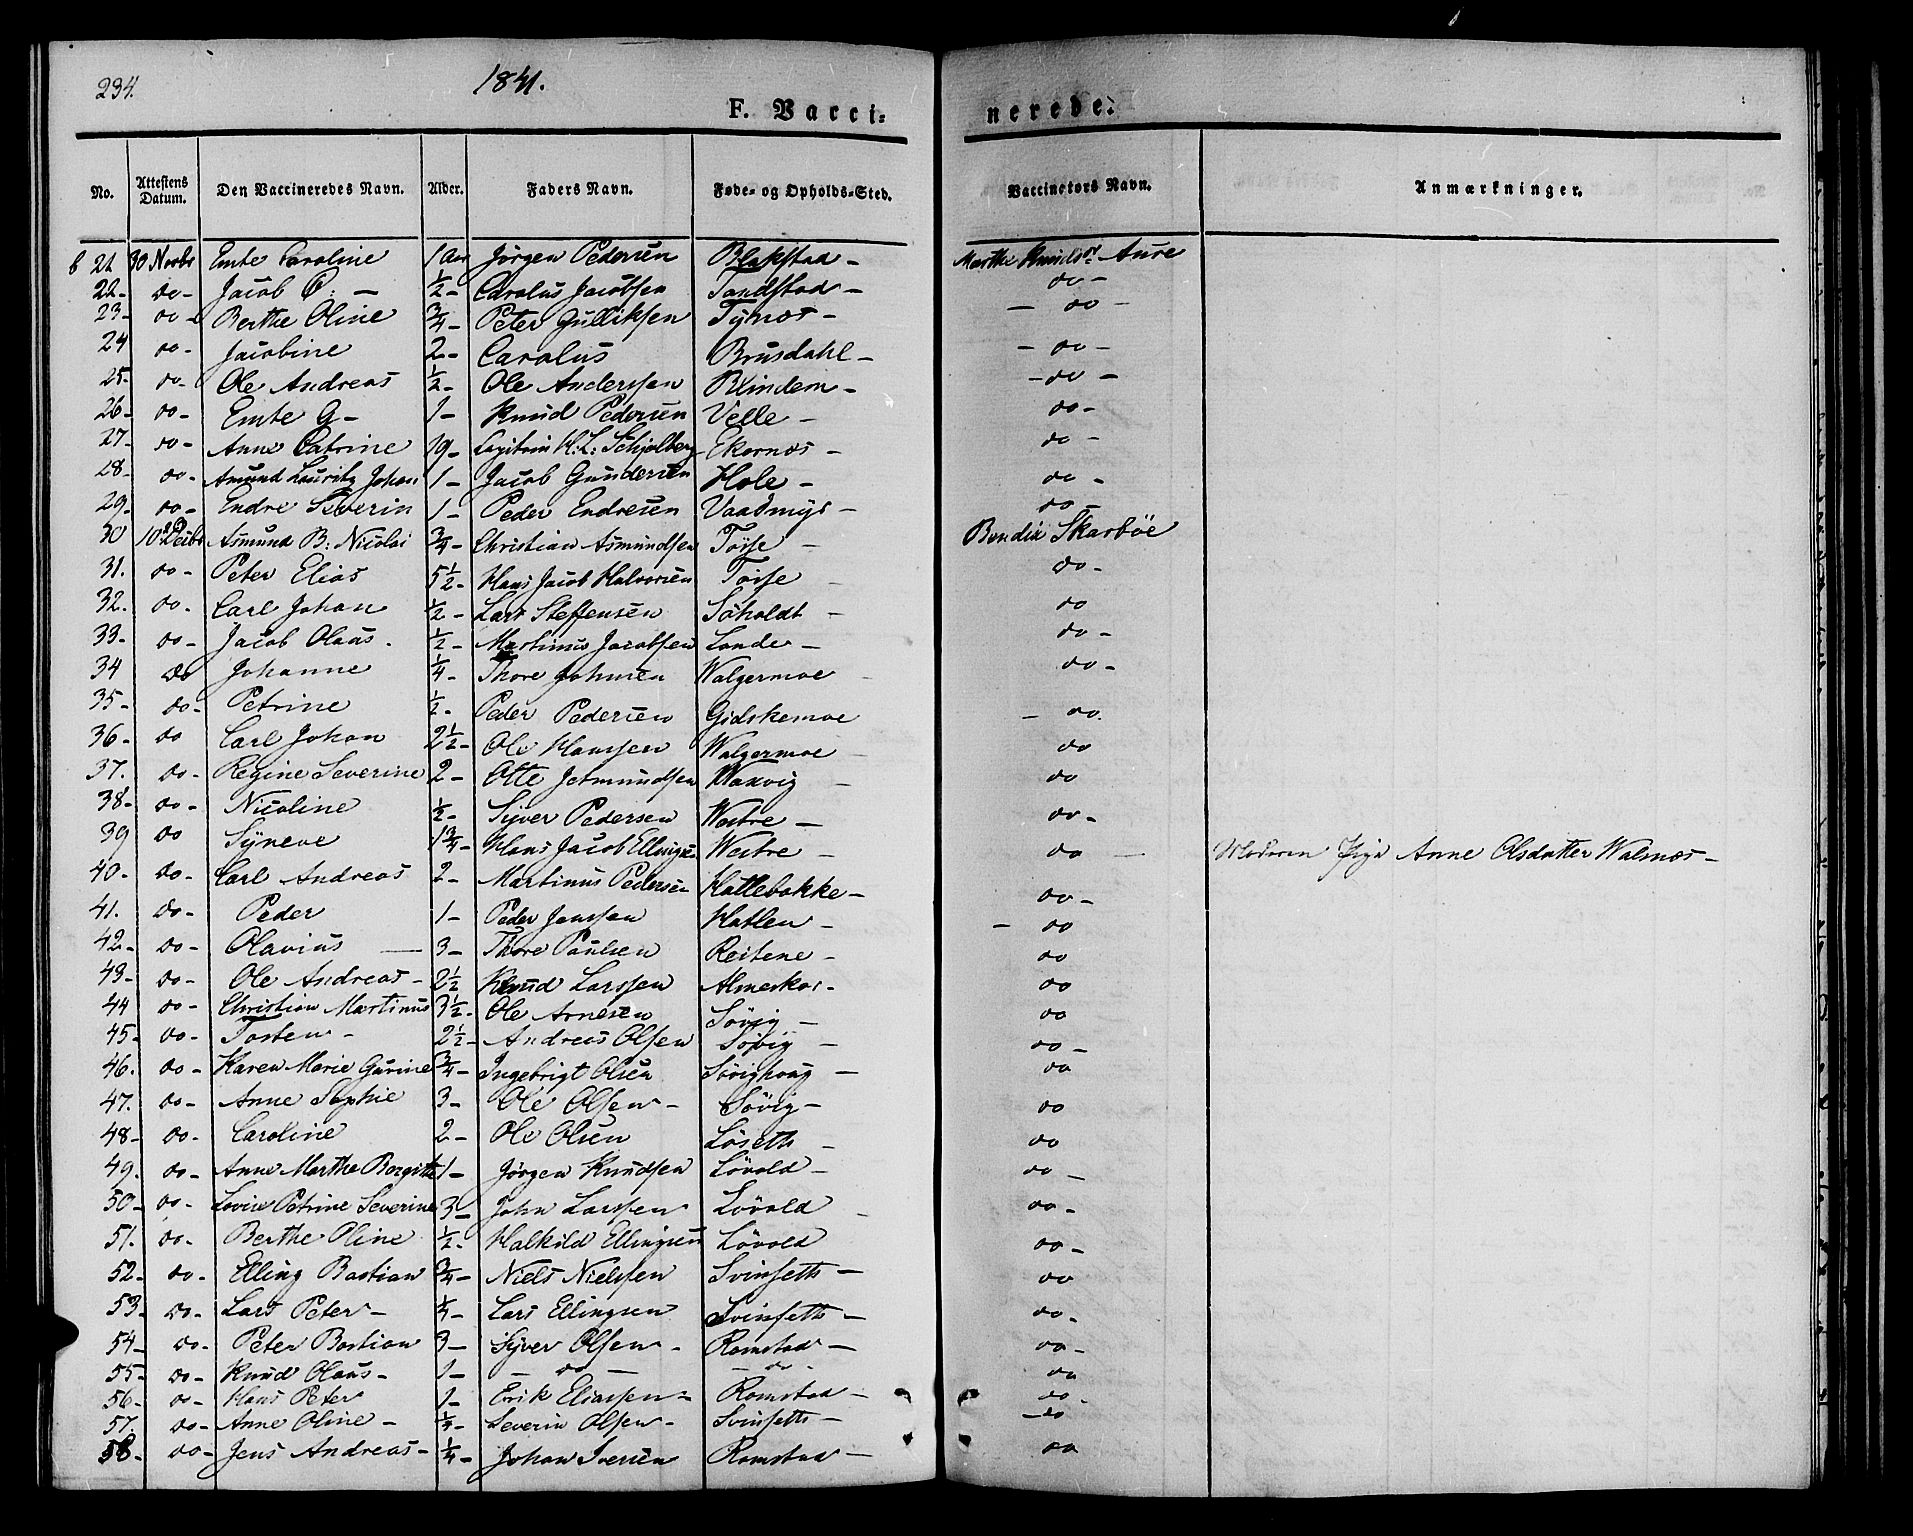 234.
1841.
F. Vacci-
nerede.
No. Attestens Datum. Den Vaccineredes Navn. Alder. Faders Navn. Føde- og Opholds-Sted. Vaccinators Navn. Anmærkninger.
21 30 Novbr Emte Caroline 1 Aar Jörgen Pedersen Blakstad - Marthe Knudsd. Aure
22- do - Jacob C: - 1/2 - Carolus Jacobsen Tandstad - do -
23- do - Berthe Oline 3/4 - Peter Gulliksen Tynes - - do -
24 do - Jacobine 2 - Carolus Brusdahl - - do -
25- do - Ole Andreas 1/2 - Ole Anderssen Blindem - - do -
26- do - Emte G - 1 - Knud Pedersen Velle - do -
27- do - Anne Catrine 19 - Capitain H: L: Schjelberg Ekornes - do -
28- do - Amund Lauritz Johan 1 - Jacob Gundersen Hole - do -
29- do - Endre Severin 1 - Peder Endresen Vaadmyr - do -
30 10 Decbr Asmund B: Nicolai 3/4 - Christian Asmundsen Tösse - Bendix Skarbøe
31. do - Peter Elias 5 1/2 - Hans Jacob Halvorsen Tösse - do -
32. do - Carl Johan 1/2 - Lars Steffensen Söholdt - do
33- do - Jacob Olaus. 1/2 - Martinus Jacobsen Lande - do -
34 do Johanne 1/4 - Thore Johnsen Walgermoe - do -
35- do - Petrine 1/2 - Peder Pedersen Gidskemoe - do.
36- do Carl Johan 2 1/2 - Ole Hanssen Walgermoe - do
37. do - Regine Severine 2 - Otte Jetmundsen Waxvig - do
38- do - Nicoline 1/2 - Syver Pedersen Westre - do -
39 do Syneve 1 3/4 - Hans Jacob Ellingsen Westre - do - Moderen Pige Anne Olsdatter Walnæs -
40- do - Carl Andreas 2 - Martinus Pedersen Hattebakke - do -
41. do - Peder 1 - Peder Janssen Hatlen - - do
42- do - Olavius - 3 - Thore Paulsen Reitene - do
43- do - Ole Andreas - 2 1/2 Knud Larssen Almeskar - do
44 do - Christian Martinus 3 1/2 - Ole Arnesen Sövig - do
45- do - Tosten - 2 1/2 - Andreas Olsen Sövig - do -
46. do - Karen Marie Gurine 3/4 - Ingebrigt Olsen Sövighaug - do
47. do - Anne Sophie 3 - Ole Olsen - Sövig - do
48- do - Caroline 2 - Ole Olsen Löseth - do
49. do - Anne Marthe Borgitte 1 - Jörgen Knudsen Lövold - do -
50- do - Lovise Petrine Severine 3 - John Larssen Lövold - do -
51. do - Berthe Oline 1/2 - Halkild Ellingsen Lövold do -
52- do - Elling Bastian 3/4 - Niels Nielsen Svinseth - do
53- do - Lars Peter - 1/4 - Lars Ellingsen Svinseth - do -
54- do - Peter Bastian 3 - Syver Olsen - Romstad - do -
55- do - Knud Olaus - 1 - - do - - do - do
56- do - Hans Peter 1 - Erik Eliassen - Romstad - do
57. do - Anne Oline - 1/4 - Severin Olsen - Svinseth - - do
58- do - Jens Andreas - 1/4 - Johan Iversen Romstad - do